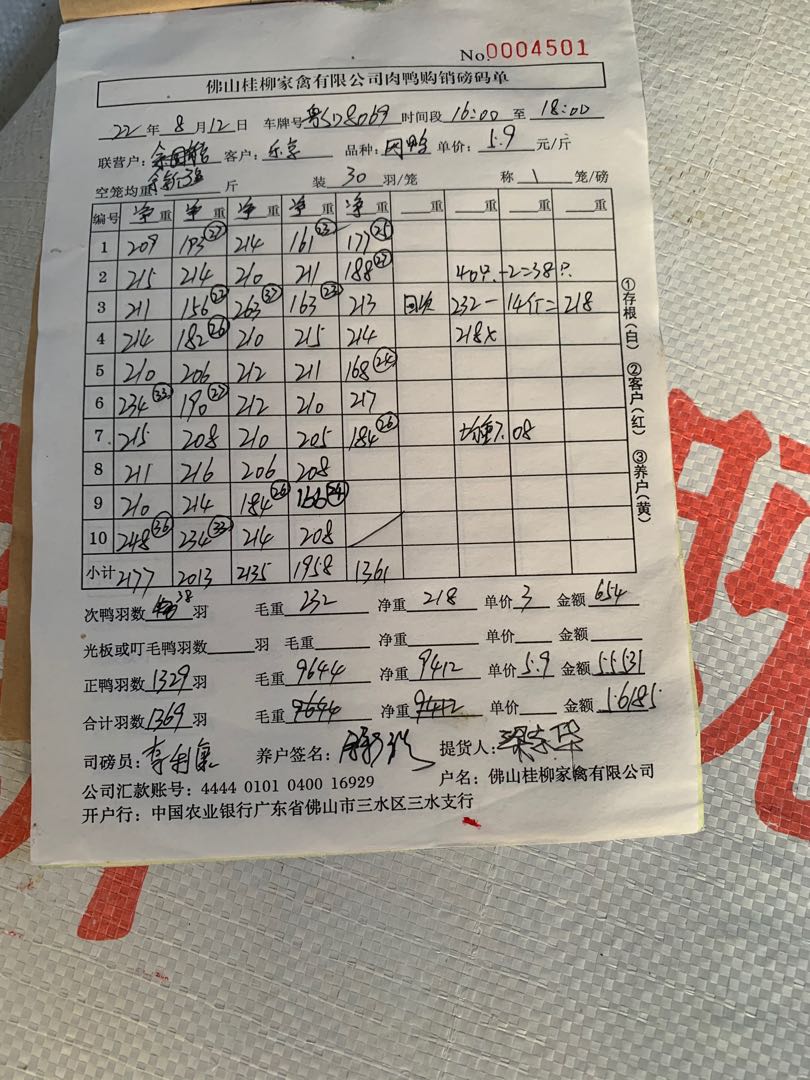 No.0004501
佛山桂柳家禽有限公司肉鸭购销磅码单
22年8月12日 车牌号 粤SD8069 时间段 16:00 至 18:00
联营户: 客户: 乐享 品种: 肉鸭 单价: 5.9 元/斤
空笼均重 斤 装 30 羽/笼 称 1 笼/磅
编号 净重 净重 净重 净重 净重 重 重 重 重
1 209 193(27) 214 161(23) 177(25)
2 215 214 210 211 188(27) 40只-2=38只
3 211 156(23) 263(37) 163(23) 213 回次 232-14斤=218
4 214 182(26) 210 215 214 218x
5 210 206 212 211 168(24)
6 234(33) 190(27) 212 210 217
7 215 208 210 205 184(26) 均重7.08
8 211 216 206 208
9 210 214 184(26) 166(24)
10 248(36) 234(33) 214 208
小计 2177 2013 2135 1958 1361
次鸭羽数 38 羽 毛重 232 净重 218 单价 3 金额 654
光板或叮毛鸭羽数 羽 毛重 净重 单价 金额
正鸭羽数 1329 羽 毛重 9644 净重 9412 单价 5.9 金额 55531
合计羽数 1369 羽 毛重 9644 净重 9412 单价 金额 56185
司磅员: 李剑康 养户签名: 提货人:
公司汇款账号: 4444 0101 0400 16929 户名: 佛山桂柳家禽有限公司
开户行: 中国农业银行广东省佛山市三水区三水支行
①存根(白) ②客户(红) ③养户(黄)